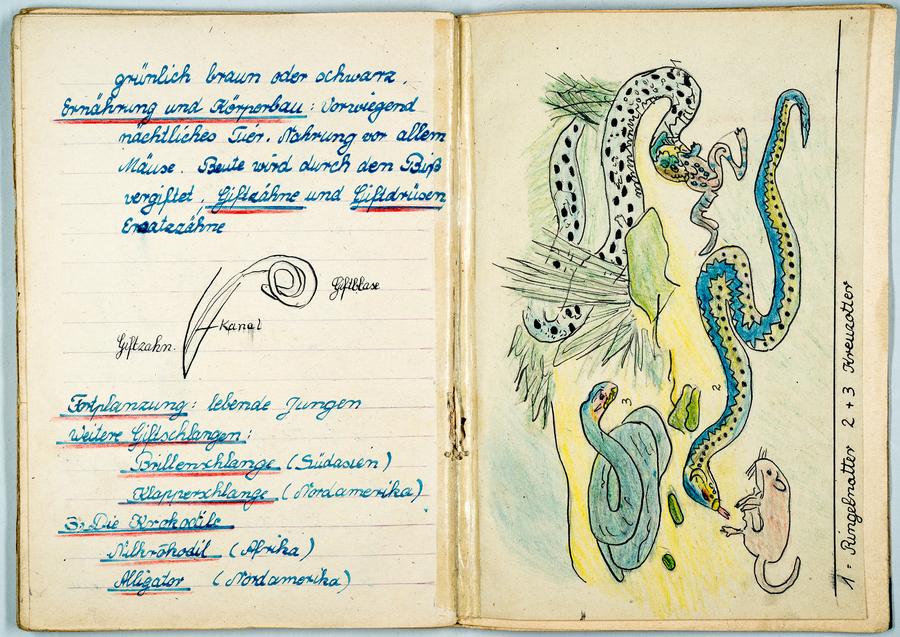 grünlich braun oder schwarz.
Ernährung und Körperbau: Vorwiegend
nächtliches Tier. Nahrung vor allem
Mäuse. Beute wird durch den Biß
vergiftet. Giftzähne und Giftdrüsen
Ersatzzähne
Giftblase
Kanal
Giftzahn.
Fortplanzung: lebende Jungen
Weitere Giftschlangen:
Brillenschlange (Südasien)
Klapperschlange (Nordamerika)
3. Die Krokodile
Nilkrokodil (Afrika)
Alligator (Nordamerika)
1
2
3
1 = Ringelnatter 2 + 3 Kreuzotter